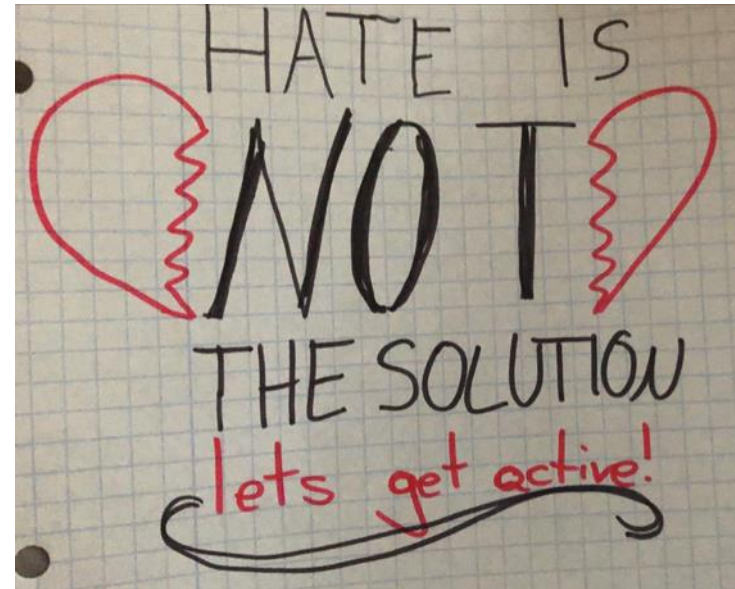 HATE IS
NOT
THE SOLUTION
lets get active!